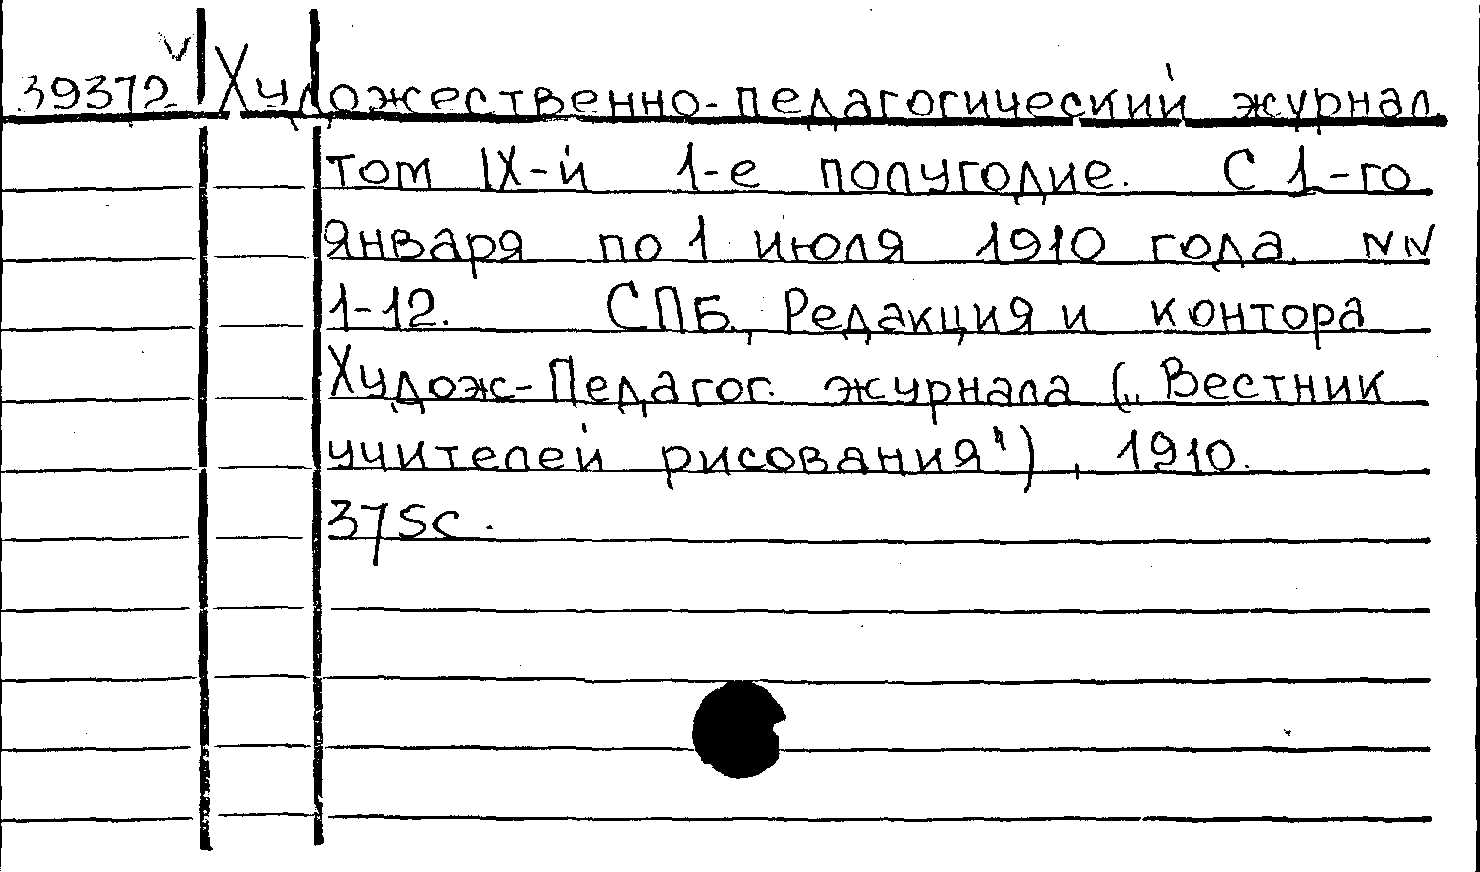 39372 v Художественно-педагогический журнал.
том IX-й 1-е полугодие. С 1-го
января по 1 июля 1910 года. NN
1-12. СПБ., Редакция и контора
Худож-Педагог. журнала („Вестник
учителей рисования"), 1910.
375с.